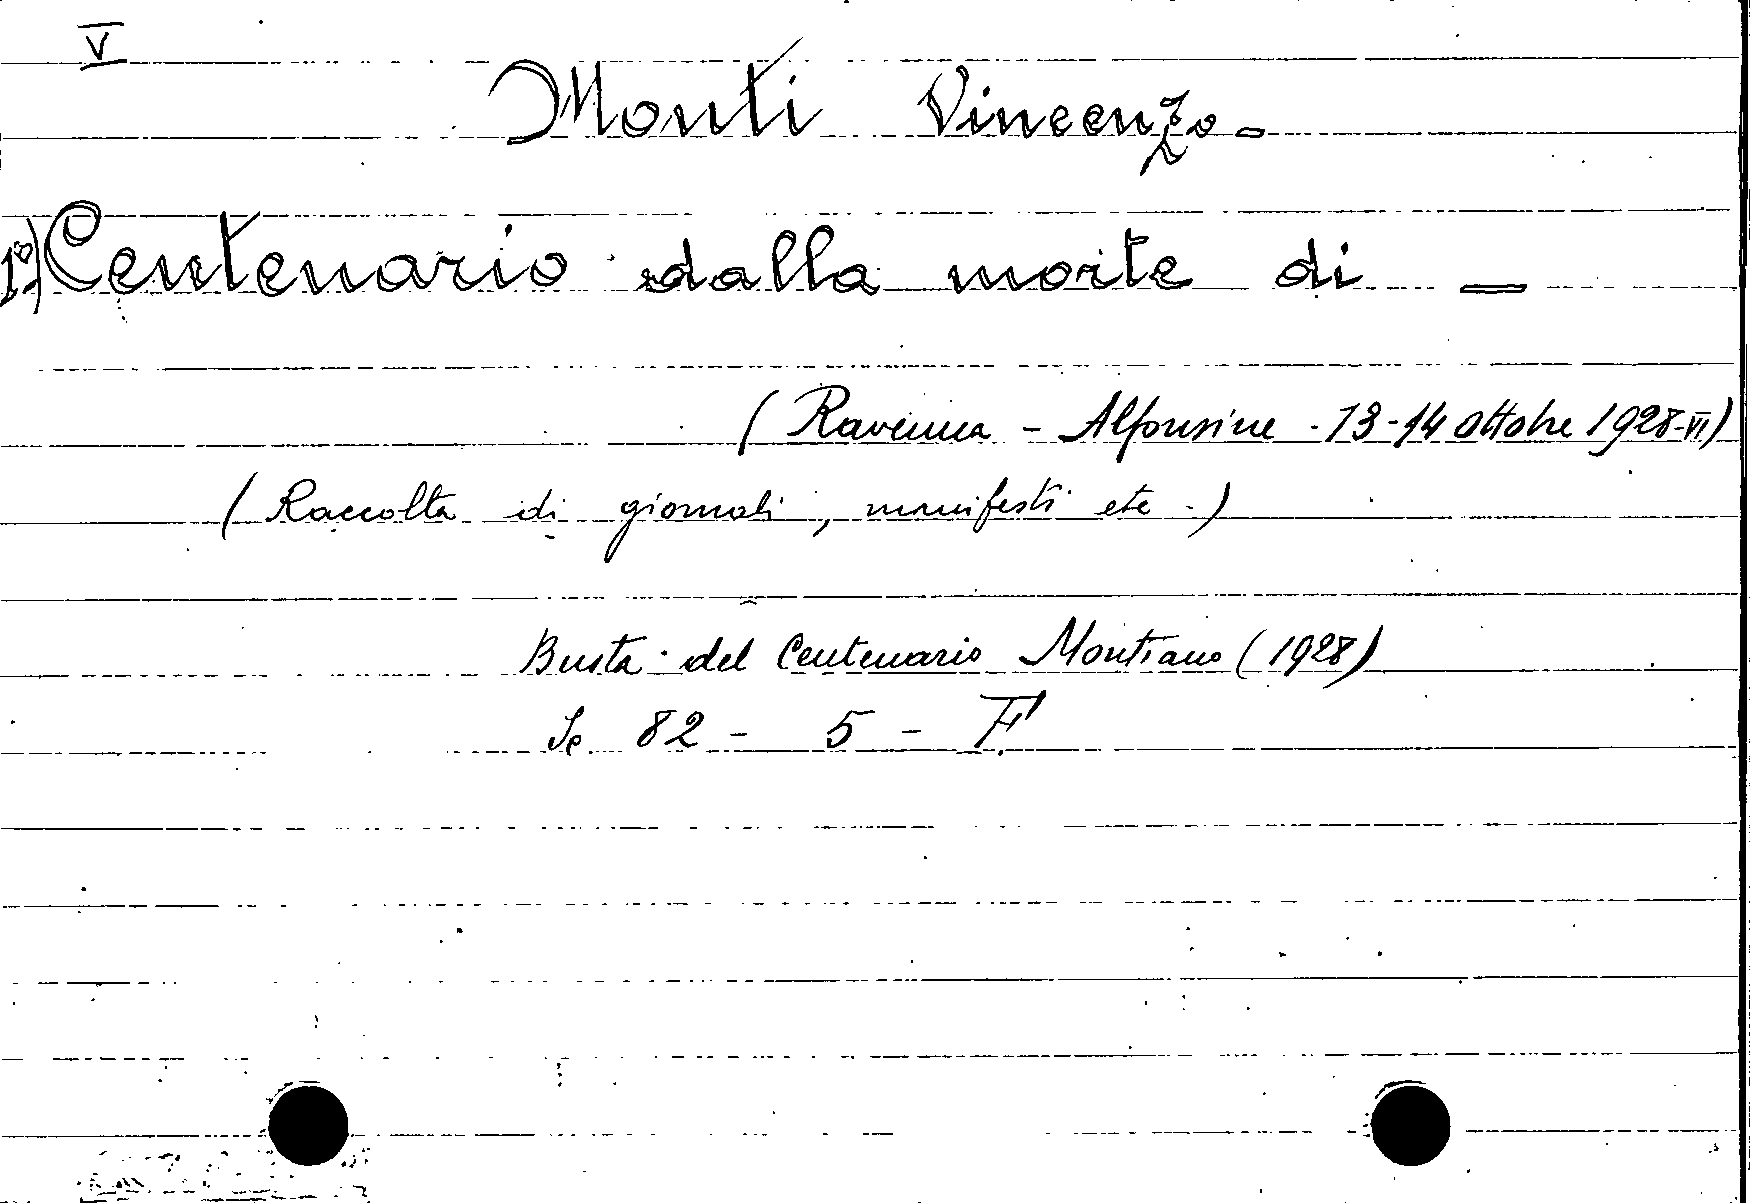 V
Monti Vincenzo -
1°) Centenario dalla morte di —
(Ravenna - Alfonsine - 13-14 Ottobre 1928-VI)
(Raccolta di giornali, manifesti etc.)
Busta del Centenario Montiano (1928)
82 - 5 - F